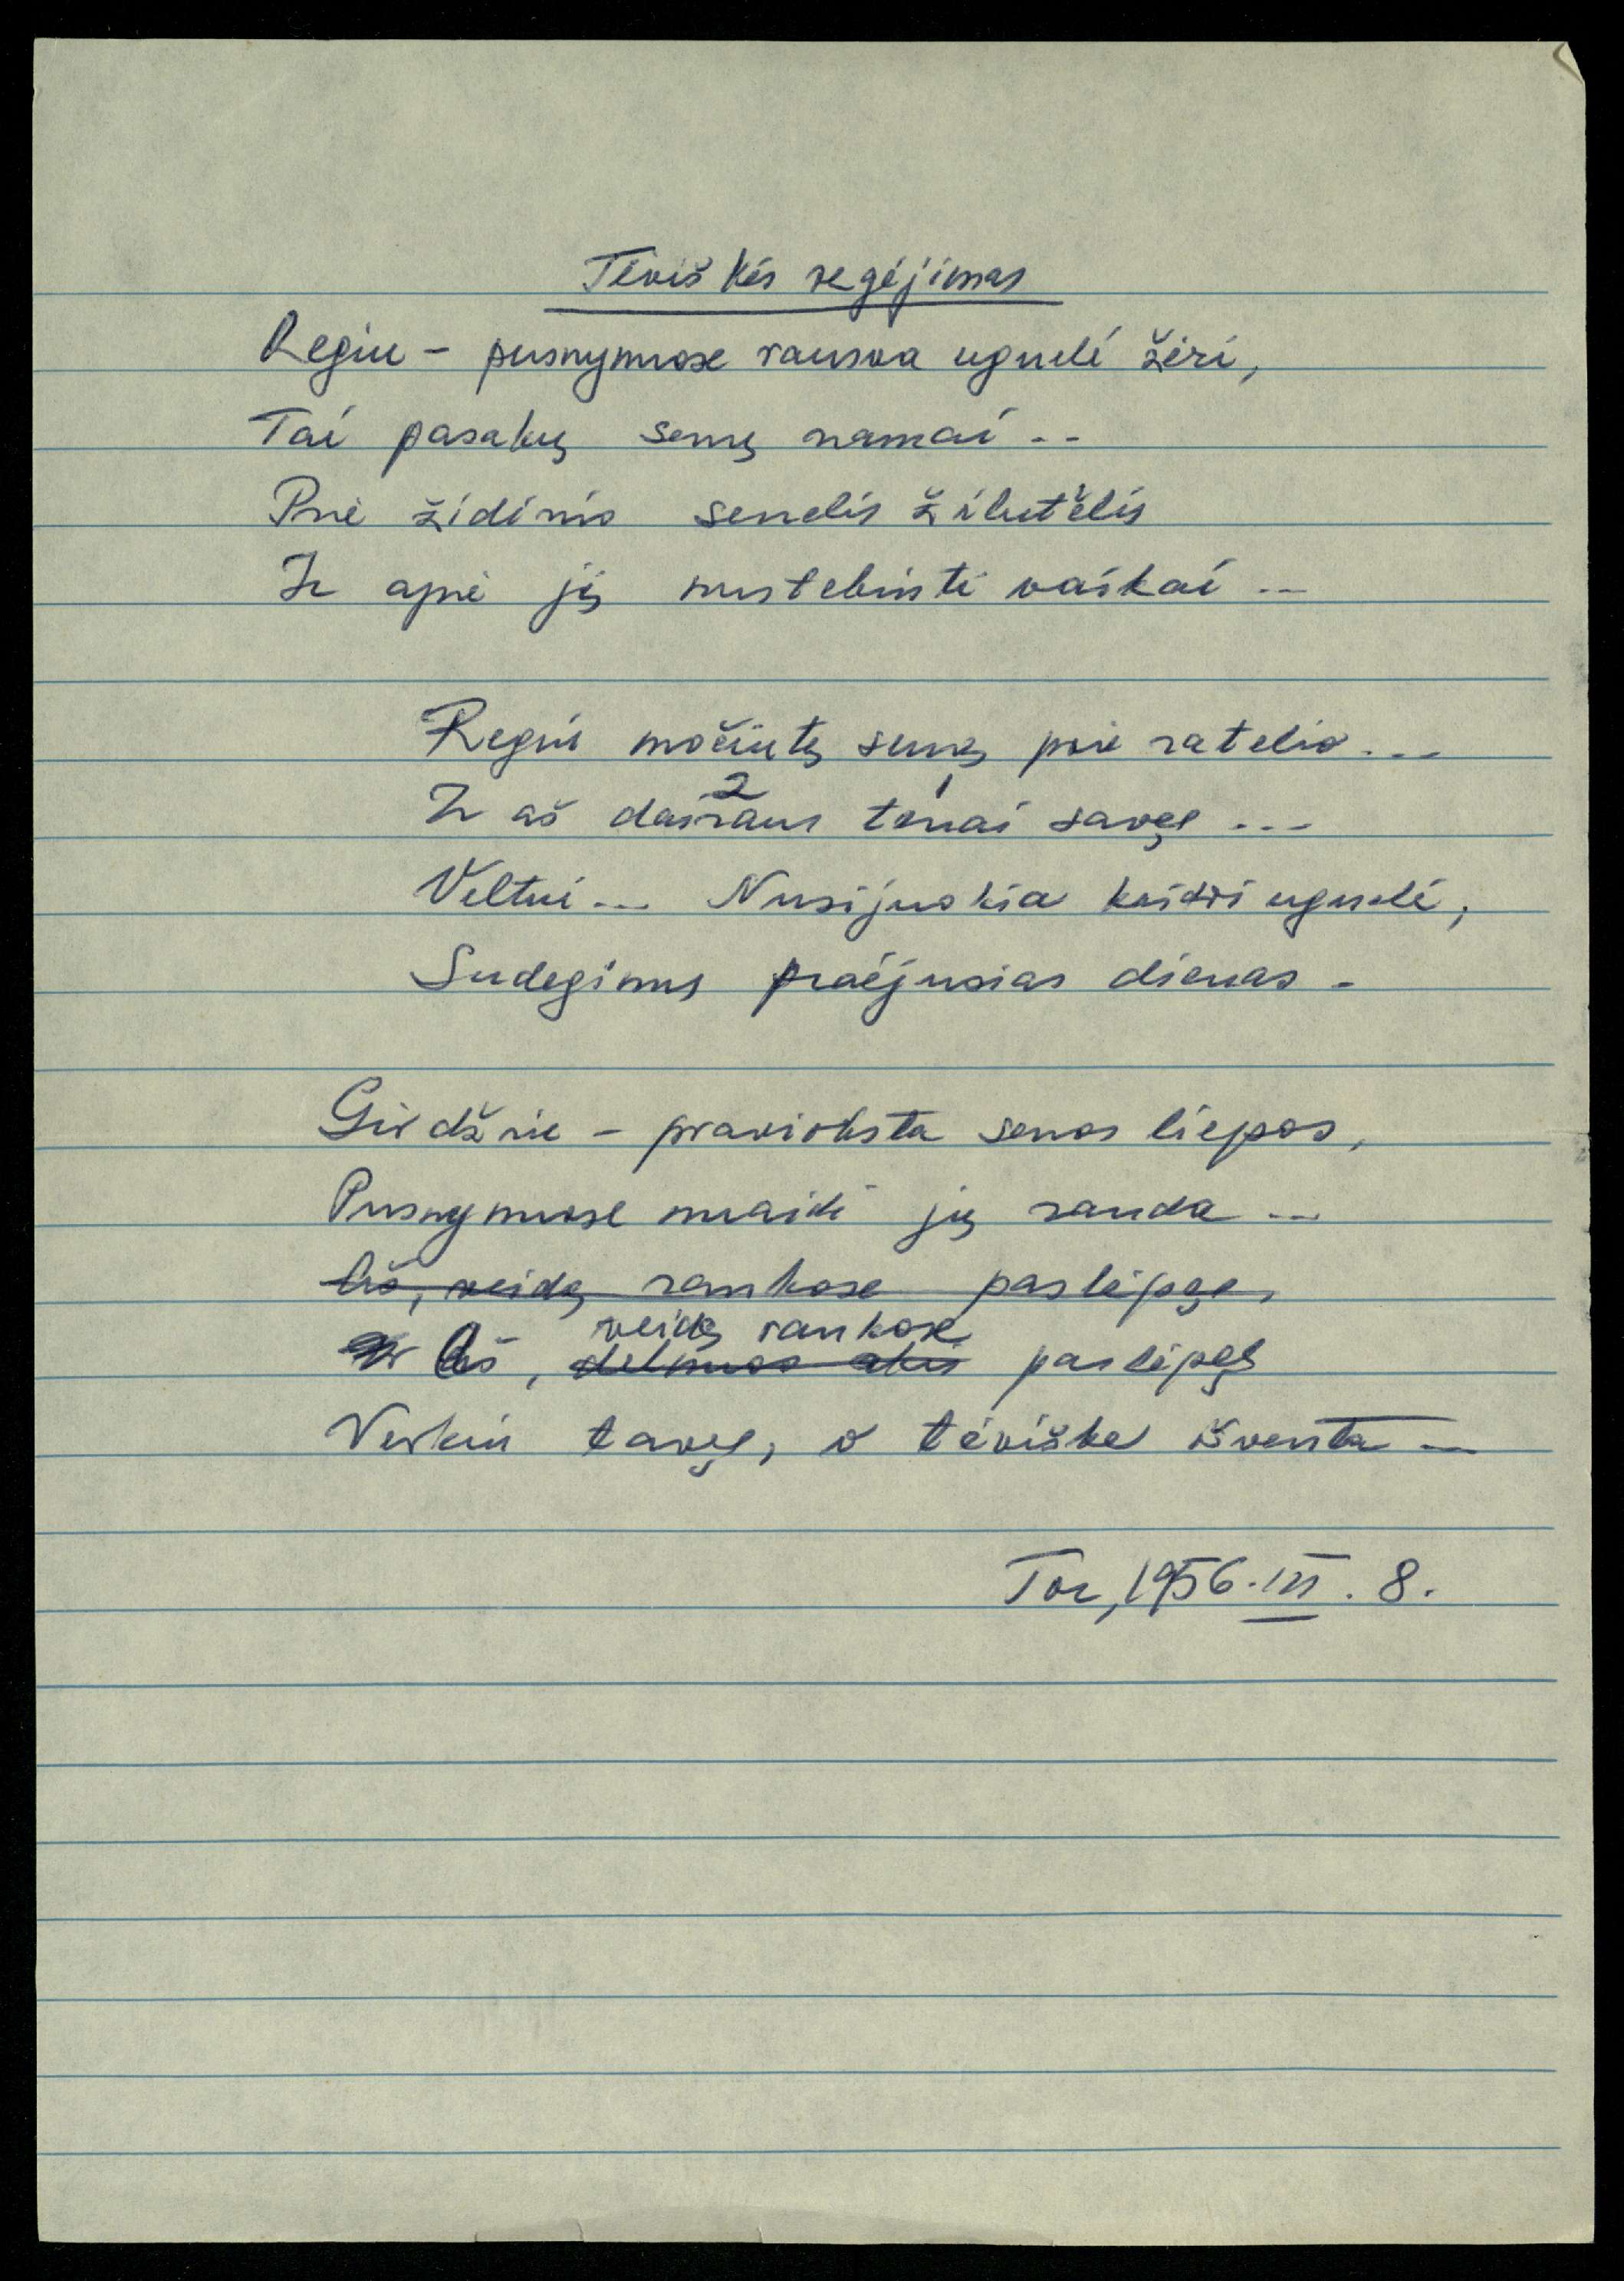 Tėviškės regėjimas
Regiu – pusnynuose rausva ugnelė žėri,
Tai pasakų senų namai...
Prie židinio senelis žilutėlis
Ir apie jį nustebinti vaikai...
Regiu močiutę seną prie ratelio...
2 1
Ir aš dairaus tenai savęs...
Veltui... Nusijuokia kaitri ugnelė,
Sudeginus praėjusias dienas.
Girdžiu – pravirksta senos liepos,
Pusnynuose nuaidi jų rauda...
Aš, veidą rankose paslėpęs,
veidą rankose
Ir Aš, delnuos akis paslėpęs
Verkiu tavęs, o tėviške šventa...
Tor, 1956.III.8.